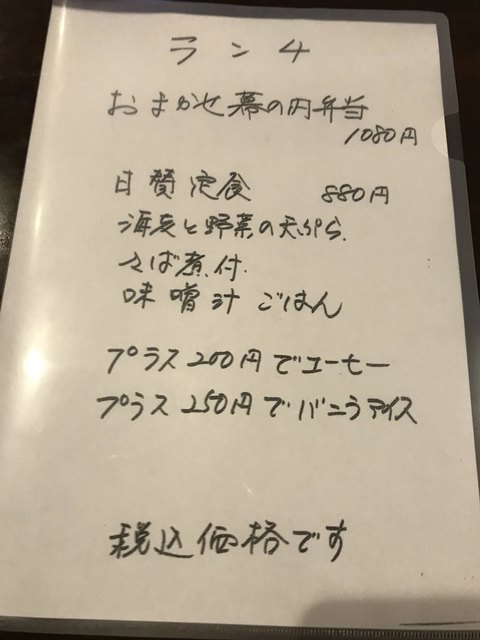 ランチ
おまかせ幕の内弁当
1080円
日賛定食 880円
海老と野菜の天ぷら
さば煮付
味噌汁 ごはん
プラス200円でコーヒー
プラス250円でバニラアイス
税込価格です